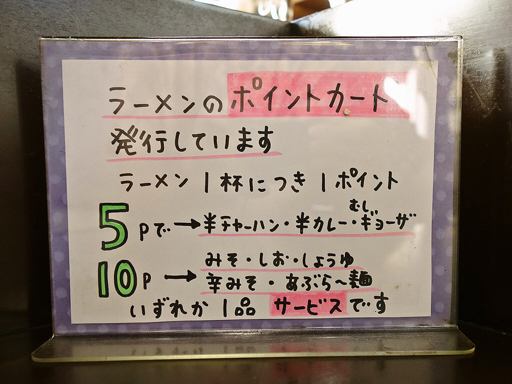 ラーメンのポイントカート
発行しています
ラーメン1杯につき1ポイント
5Pで→半チャーハン・半カレー・ギョーザ
むし
10P→みそ・しお・しょうゆ
辛みそ・あぶら〜麺
いずれか1品サービスです